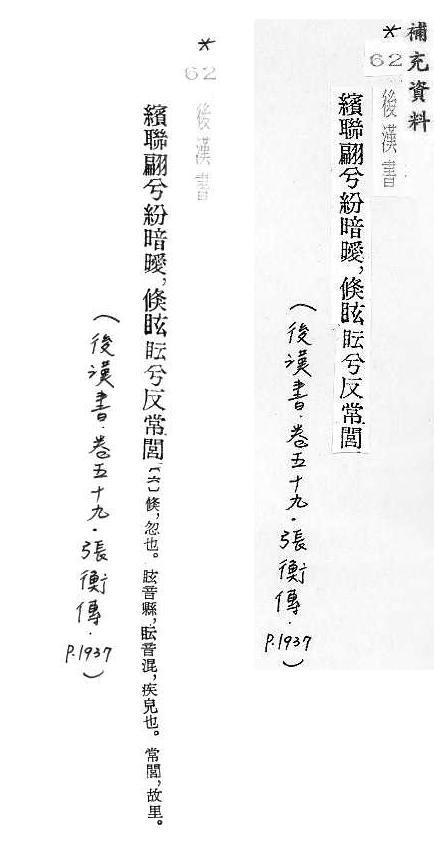 補充資料
*
62
後漢書
繽聯翩兮紛暗曖,倏眩眃兮反常閭
(後漢書·卷五十九·張衡傳·P.1937)
*
62
後漢書
繽聯翩兮紛暗曖,倏眩眃兮反常閭〔六〕倏,忽也。眩音縣,眃音混,疾皃也。常閭,故里。
(後漢書·卷五十九·張衡傳·P.1937)